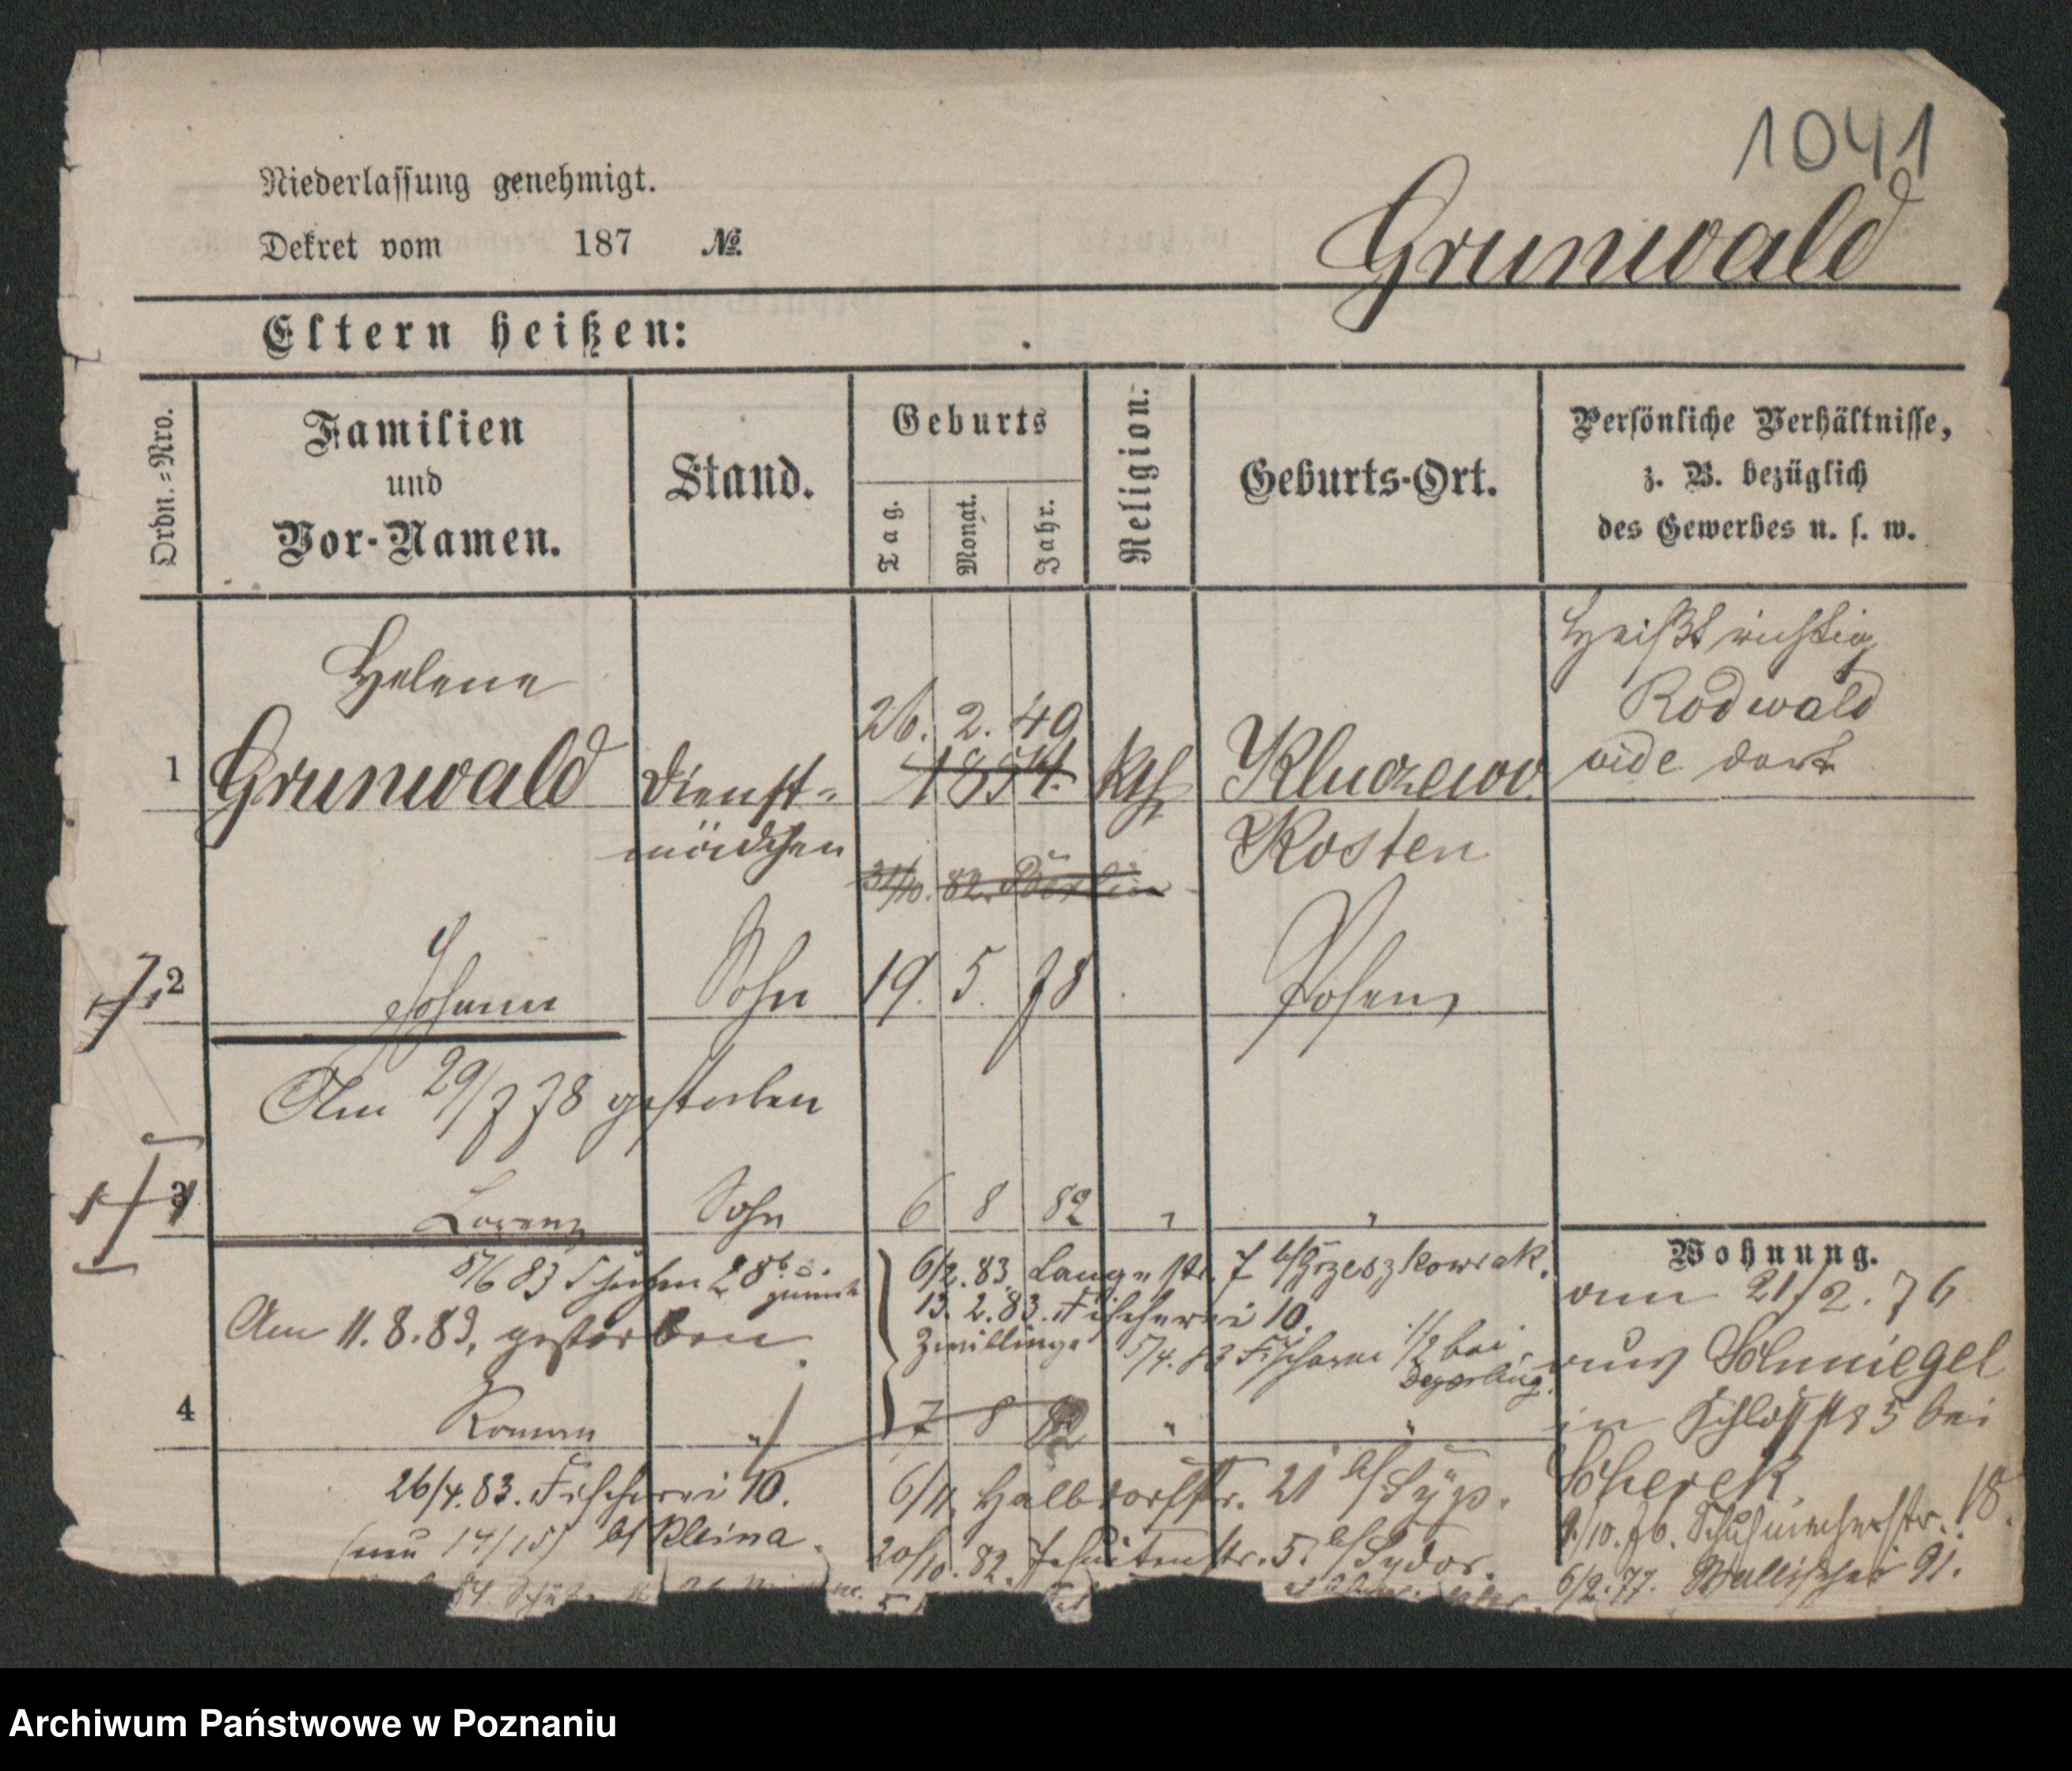 1041
Niederlassung genehmigt.
Dekret vom 187 №
Grunwald
Eltern heißen:
Ordn.=Nro.
Familien
und
Vor-Namen.
Stand.
Geburts
Tag.
Monat.
Jahr.
Religion.
Geburts-Ort.
Persönliche Verhältnisse,
z. B. bezüglich
des Gewerbes u. s. w.
Heißt richtig
Rodwald
vide dort
Helene
26. 2. 49
1 Grunwald Dienst= 1854. kth Kluczewo
mädchen Kosten
31/10. 82. Berlin
2 Johann Sohn 19. 5. 78 Posen
Am 29/7 78 gestorben
3 Lorenz Sohn 6 8 82 " "
Wohnung.
5/6 83 28
6/2. 83. Langestr. 7 b/Grzeszkowiak.
Am 11. 8. 83. gestorben
13. 2. 83. Fischerei 10.
Zwillinge
5/4. 83 Fischerei 1/2 bei
4 Roman " 7 8 82 " "
26/4. 83. Fischerei 10.
(neu 14/15) b/ Kleina.
6/11. Halbdorfstr. 21 b/Syp.
20/10. 82. Jesuitenstr. 5. b/Sydor.
am 21/2. 76
aus Schmiegel
in Schloßstr 5 bei
Scherek
9/10. 76. Schuhmacherstr. 18.
6/2. 77. Wallischei 91.
Archiwum Państwowe w Poznaniu